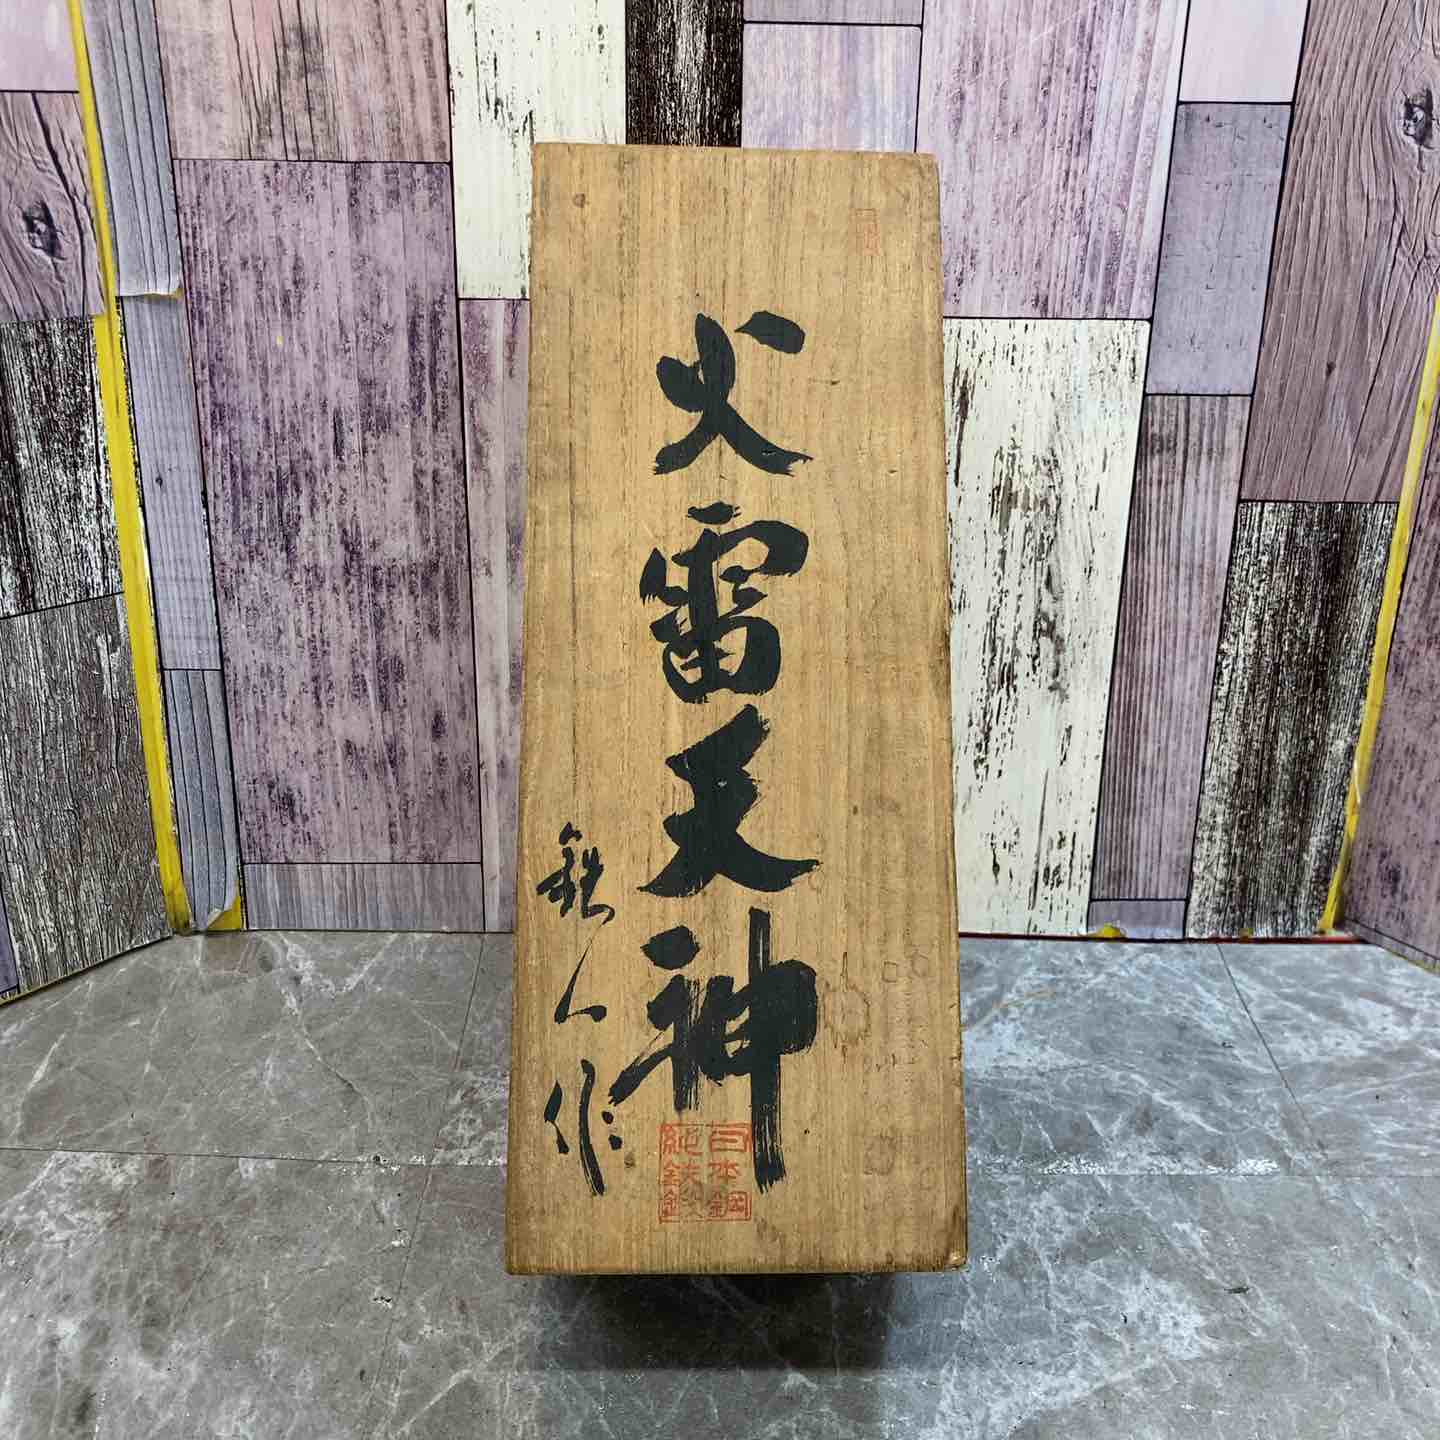 火雷天神
鉄人作
日本鋼
純鉄鍛